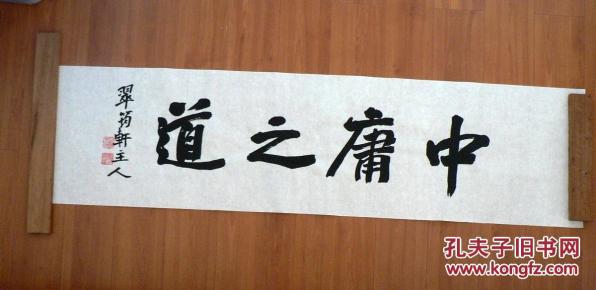 中庸之道
翠筠軒主人
孔夫子旧书网
www.kongfz.com